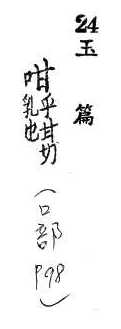 24玉篇
咁乎甘切
乳也
(口部
P98)